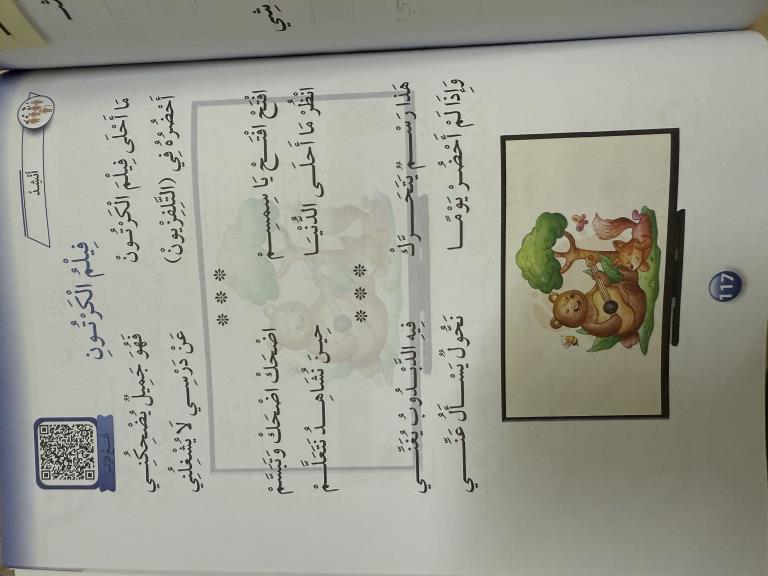 أُنْشِدُ
فِيلْمُ الْكَرْتُونِ
مَا أَحْلَى فِيلْمَ الْكَرْتُونْ فَهُوَ جَمِيلٌ يُضْحِكُنِي
أَحْضُرُهُ فِي (التَّلَفِزْيُونْ) عَنْ دَرْسِي لَا يُشْغِلُنِي
***
افْتَحْ افْتَحْ يَا سِمْسِمْ اضْحَكْ اضْحَكْ وَتَبَسَّمْ
انْظُرْ مَا أَحْلَى الدُّنْيَا حِينَ نُشَاهِدُ نَتَعَلَّمْ
***
هَذَا رَسْمٌ يَتَحَرَّكْ فِيهِ الدَّبْدُوبُ يُغَنِّي
وَإِذَا لَمْ أَحْضُرْ يَوْمًا نَحُّولٌ يَسْأَلُ عَنِّي
117